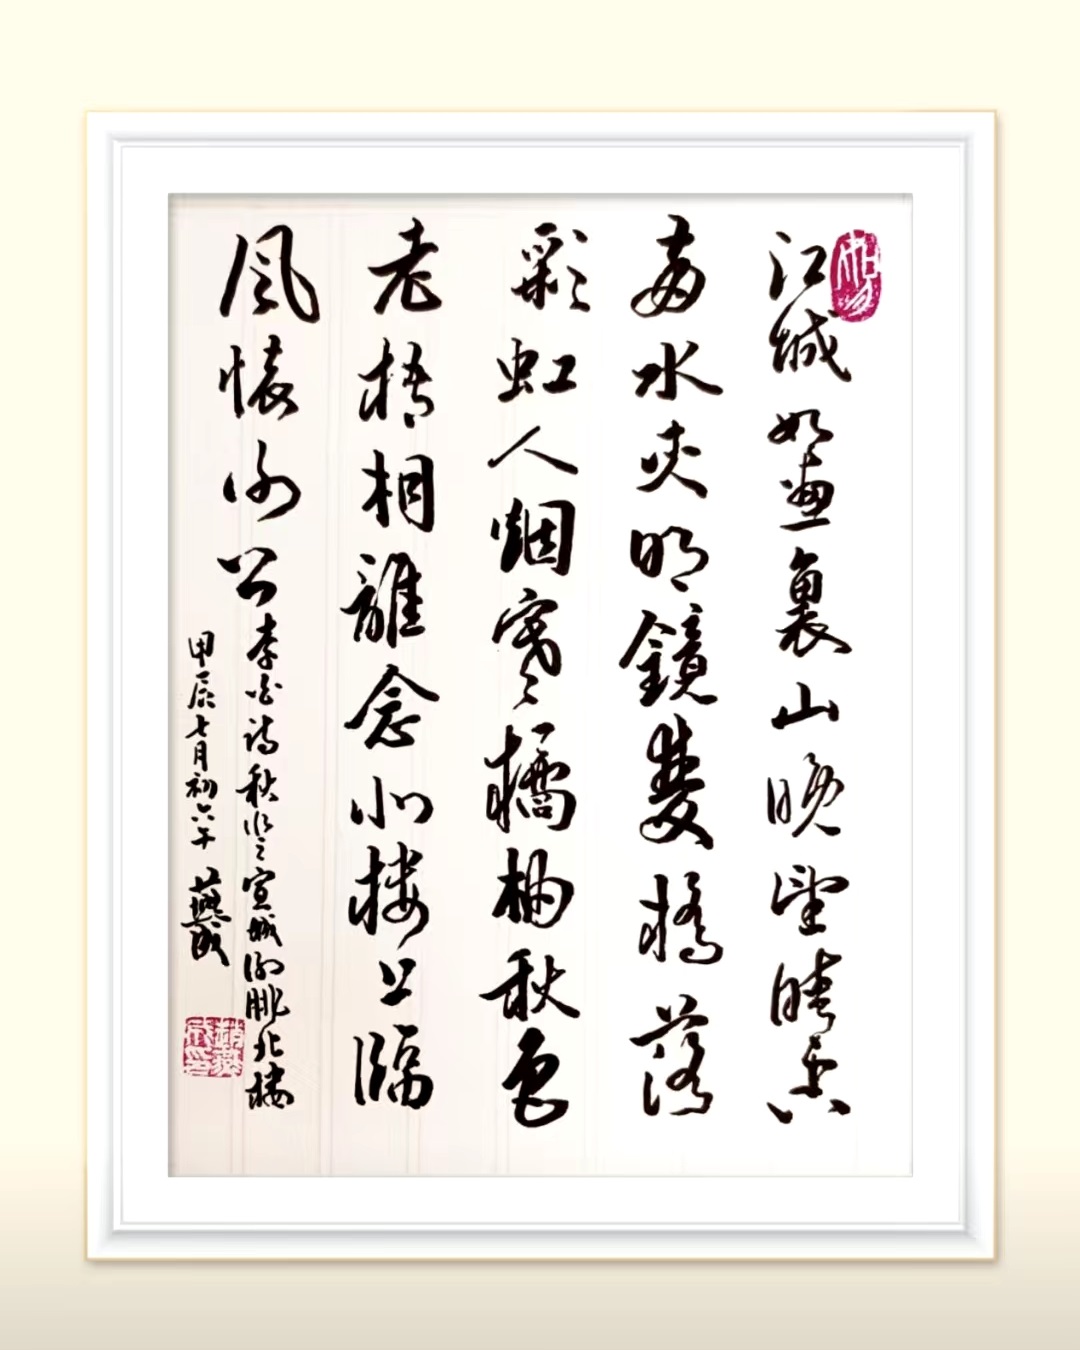 江城如畫裏山晚望晴空
兩水夾明鏡雙橋落
彩虹人烟寒橘柚秋色
老梧桐誰念北楼上臨
風懷謝公
李白诗秋登宣城謝朓北楼
甲辰七月初六午